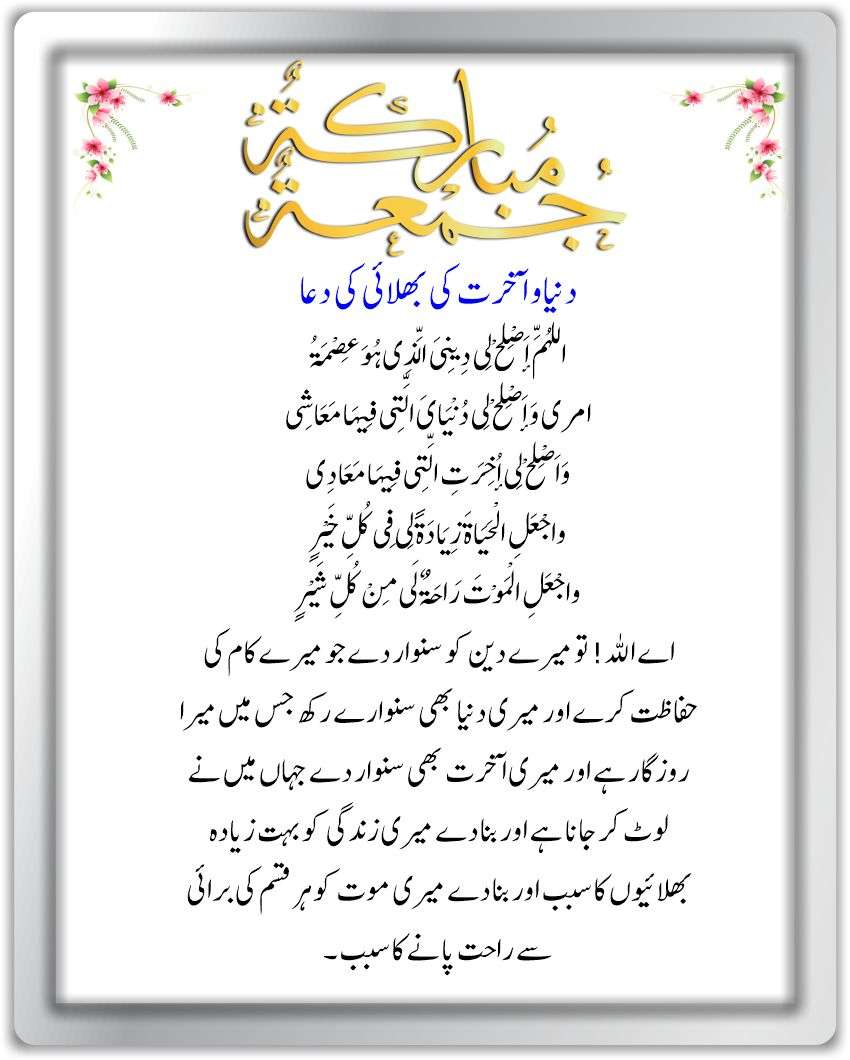 جُمعةٌ مُباركةٌ
دنیا و آخرت کی بھلائی کی دعا
اللهُمَّ اَصْلِحْ لِی دِینِیَ الَّذِی هُوَ عِصْمَةُ
امری وَاَصْلِحْ لِی دُنْیَایَ الَّتِی فِیهَا مَعَاشِی
وَاَصْلِحْ لِی اٰخِرَتِ الَّتِی فِیهَا مَعَادِی
واجْعَلِ الْحَیَاةَ زِیَادَةً لِی فِی کُلِّ خَیْرٍ
واجْعَلِ الْمَوْتَ رَاحَةٌ لَی مِنْ کُلِّ شَیْرٍ
اے اللہ! تو میرے دین کو سنوار دے جو میرے کام کی
حفاظت کرے اور میری دنیا بھی سنوارے رکھ جس میں میرا
روزگار ہے اور میری آخرت بھی سنوار دے جہاں میں نے
لوٹ کر جانا ہے اور بنادے میری زندگی کو بہت زیادہ
بھلائیوں کا سبب اور بنادے میری موت کو ہر قسم کی برائی
سے راحت پانے کا سبب۔